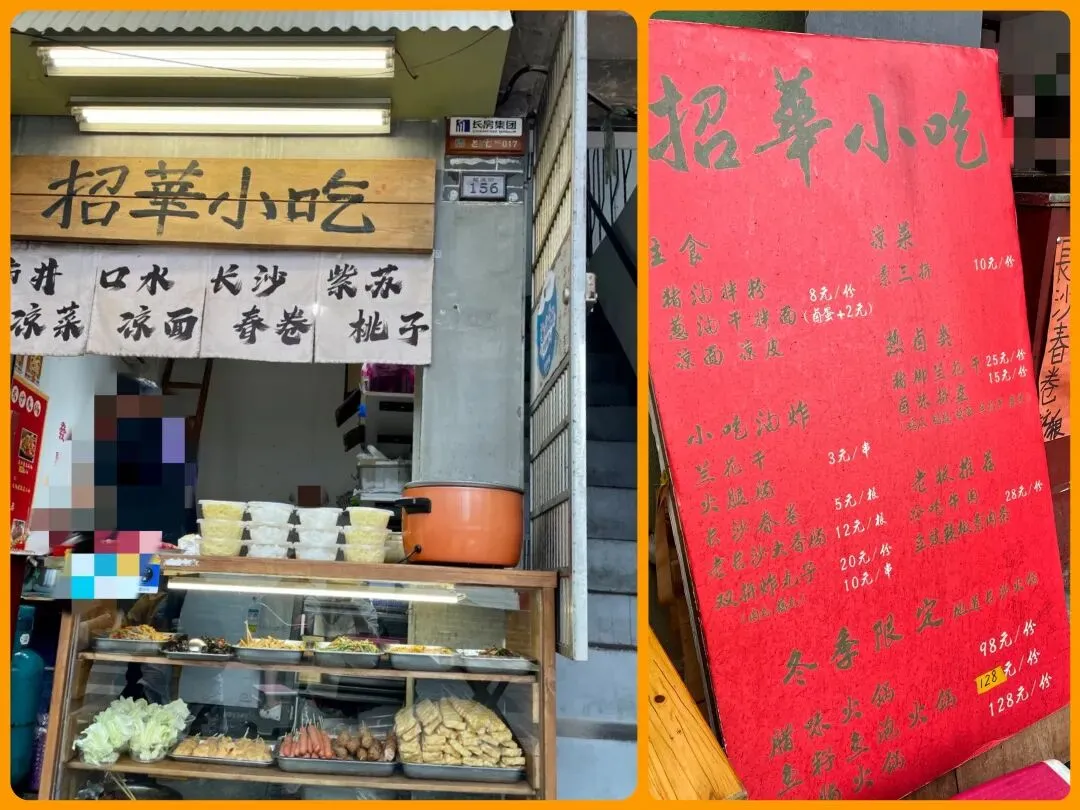 长房集团
017
156
招華小吃
市井 口水 长沙 紫苏
凉菜 凉面 春卷 桃子
招華小吃
主食
猪油拌粉 8元/份
葱油干拌面(卤蛋+2元)
凉面 凉皮
凉菜
素三拼 10元/份
热卤类
猪脚兰花干 25元/份
卤味拼盘 15元/份
小吃油炸
兰花干 3元/串
火腿肠
长沙春卷 5元/根
老长沙大香肠 12元/根
双拼炸丸子 20元/份
10元/串
老板推荐
28元/份
冬季限定
腊味火锅 98元/份
鱼籽鱼泡火锅 128元/份
火锅 128元/份
長沙春卷